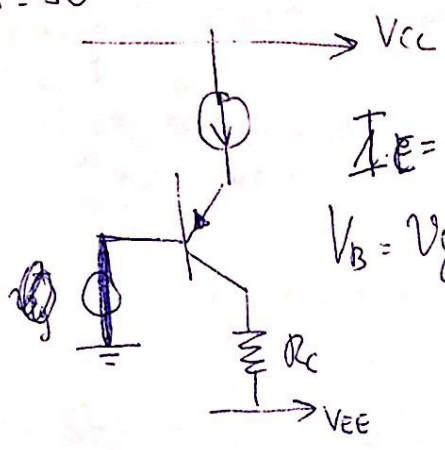 VCC
I.E =
VB = Vg
RC
VEE